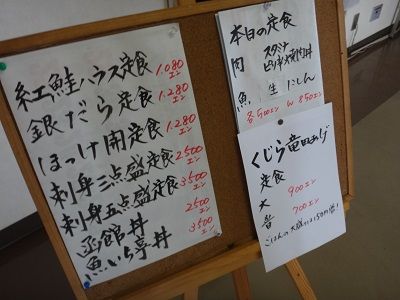 紅鮭ハラス定食 1.080エン
銀だら定食 1.280エン
ほっけ開定食 1.280エン
刺身三点盛定食 2500エン
刺身五点盛定食 3500エン
函館丼 2500エン
魚いち亭丼 3500エン
本日の定食
肉 スタミナ
魚 生にしん
各500エン W 850エン
くじら竜田あげ
定食
大 900エン
普 700エン
ごはんの大盛は150円増!